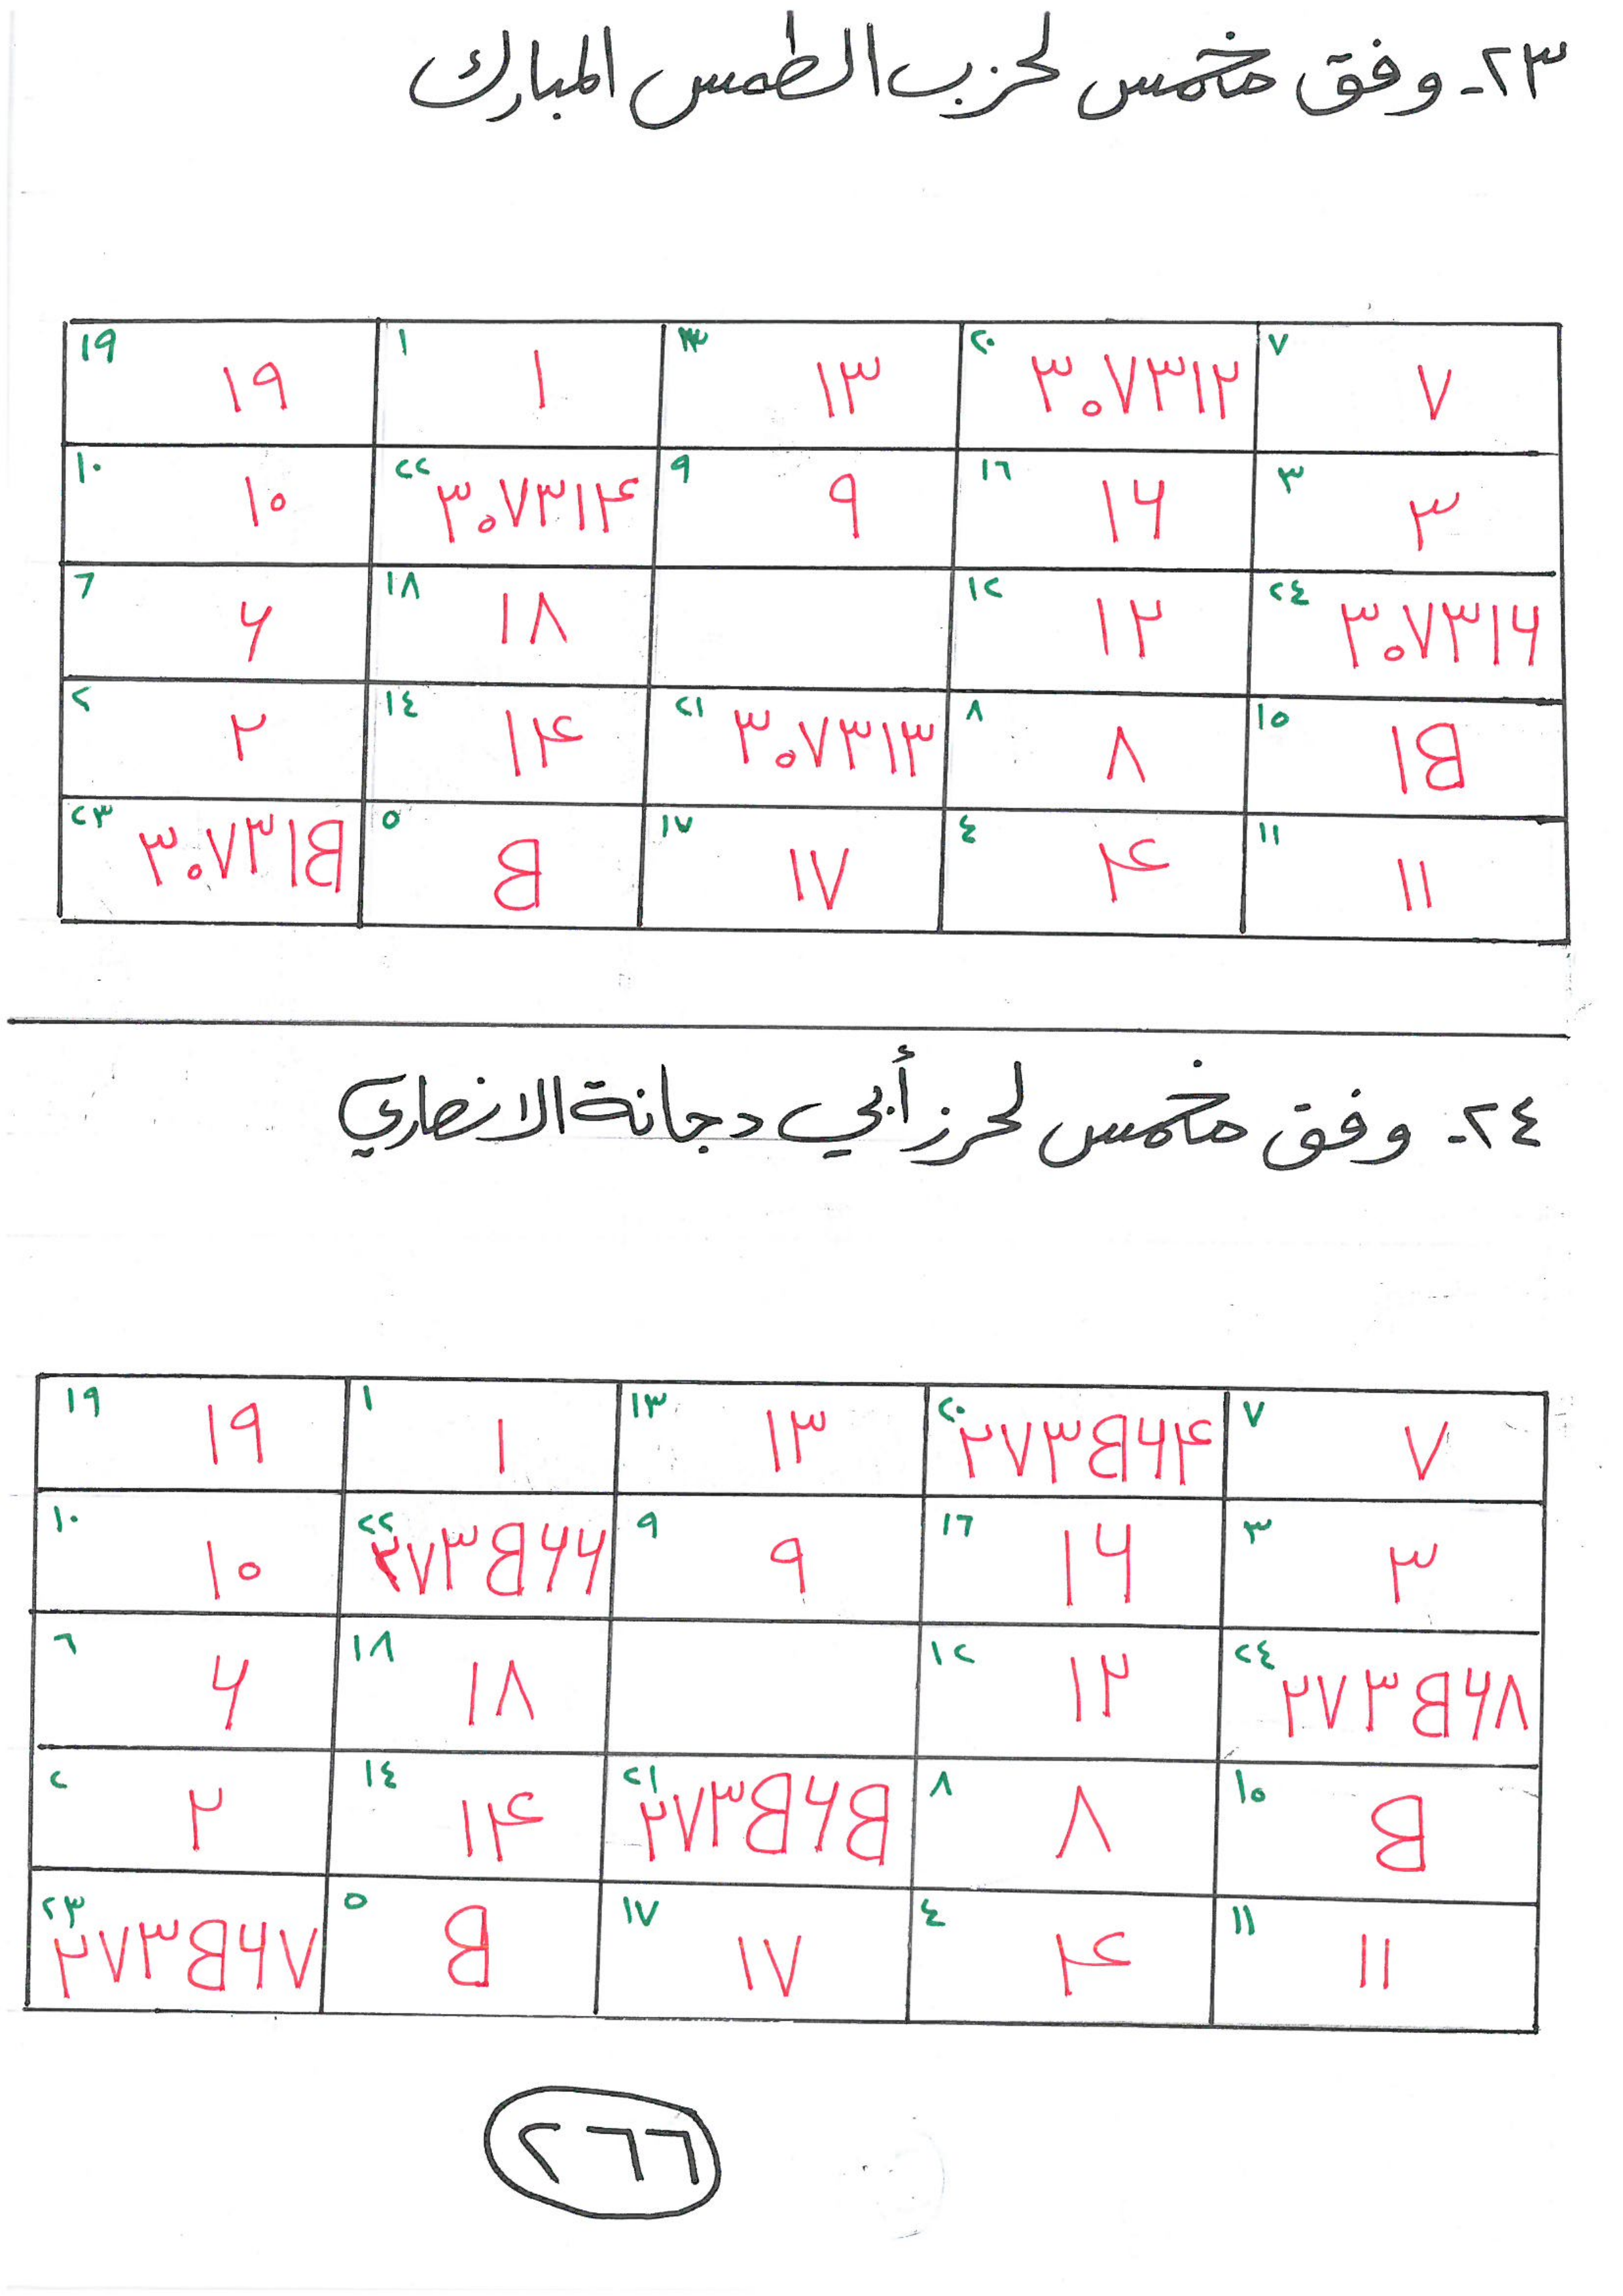 ٢٣- وفق مخمس لحزب الطمس المبارك
١٩ ١٩ ١ ١ ١٣ ١٣ ٢٠ ٣٠٧٣١٢ ٧ ٧
١٠ ١٠ ٢٢ ٣٠٧٣١۴ ٩ ٩ ١٦ ١۶ ٣ ٣
٦ ۶ ١٨ ١٨ ١٢ ١٢ ٢٤ ٣٠٧٣١۶
٢ ٢ ١٤ ١۴ ٢١ ٣٠٧٣١٣ ٨ ٨ ١٥ ١B
٢٣ ٣٠٧٣١B ٥ B ١٧ ١٧ ٤ ۴ ١١ ١١
٢٤- وفق مخمس لحرز أبي دجانة الانصاري
١٩ ١٩ ١ ١ ١٣ ١٣ ٢٠ ٢٧٣B۶۴ ٧ ٧
١٠ ١٠ ٢٢ ٢٧٣B۶۶ ٩ ٩ ١٦ ١۶ ٣ ٣
٦ ۶ ١٨ ١٨ ١٢ ١٢ ٢٤ ٢٧٣B۶٨
٢ ٢ ١٤ ١۴ ٢١ ٢٧٣B۶B ٨ ٨ ١٥ B
٢٣ ٢٧٣B۶٧ ٥ B ١٧ ١٧ ٤ ۴ ١١ ١١
٢٦٦